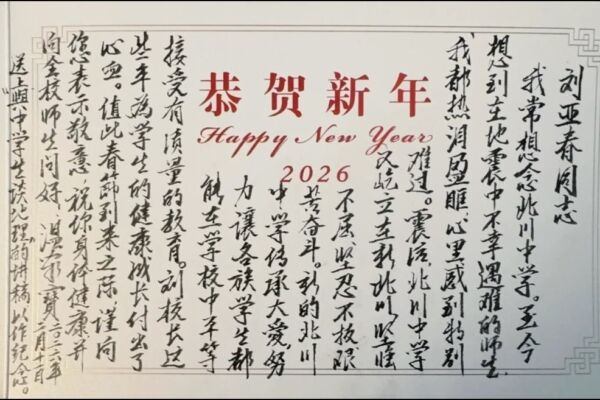 恭贺新年
Happy New Year
2026
刘亚春同志
我常想念北川中学。至今
想到在地震中不幸遇难的师生
我都热泪盈眶,心里感到特别
难过。震后北川中学
又屹立在新北川,坚强
不屈,坚忍不拔,艰
苦奋斗。新的北川
中学传承大爱,努
力让各族学生都
能在学校中平等
接受有质量的教育。刘校长这
些年为学生的健康成长付出了
心血。值此春節到来之际,谨向
您表示敬意,祝你身体健康,并
向全校师生问好。温家寶 二〇二六年
二月十一日
送上《與中学生谈地理》的讲稿,以作纪念。